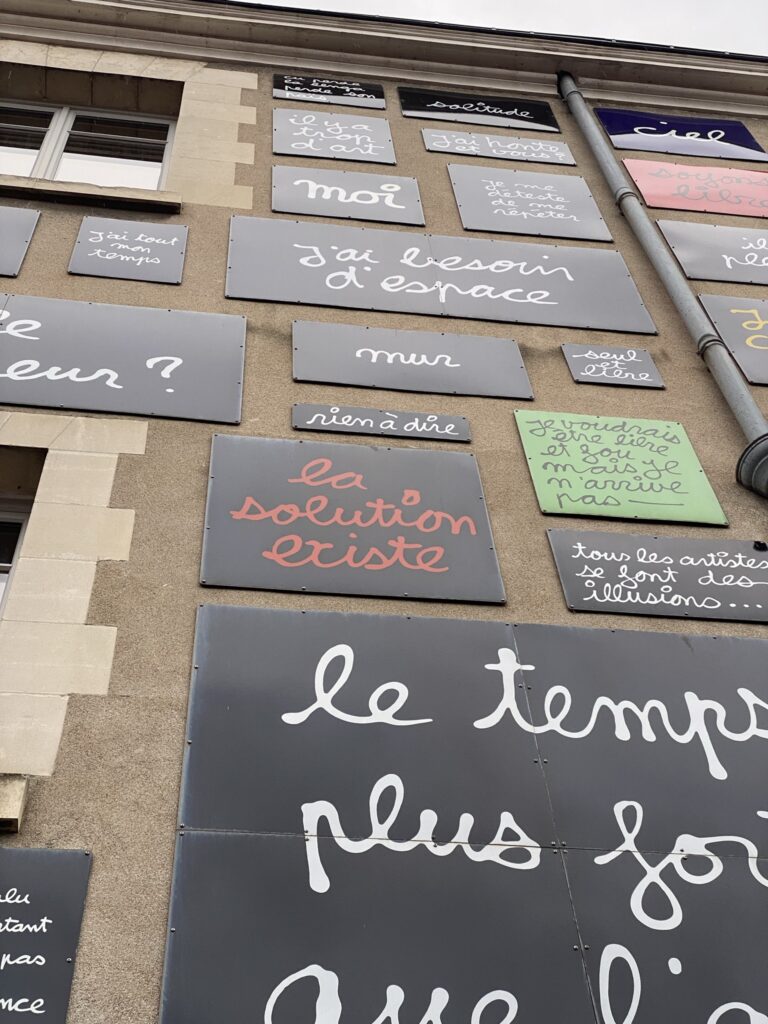 perde son
solitude
ciel
il y a
trop
d'art
j'ai honte
et vous?
soyons
libre
moi
je me
déteste
de me
répéter
j'ai tout
mon
temps
J'ai besoin
d'espace
il
ple
J'
eur ?
mur
seul
et
libre
rien à dire
je voudrais
être libre
et fou
mais je
n'arrive
pas
la
solution
existe
tous les artistes
se font des
illusions...
le temps
plus for
que l'a
lu
rtant
pas
nce